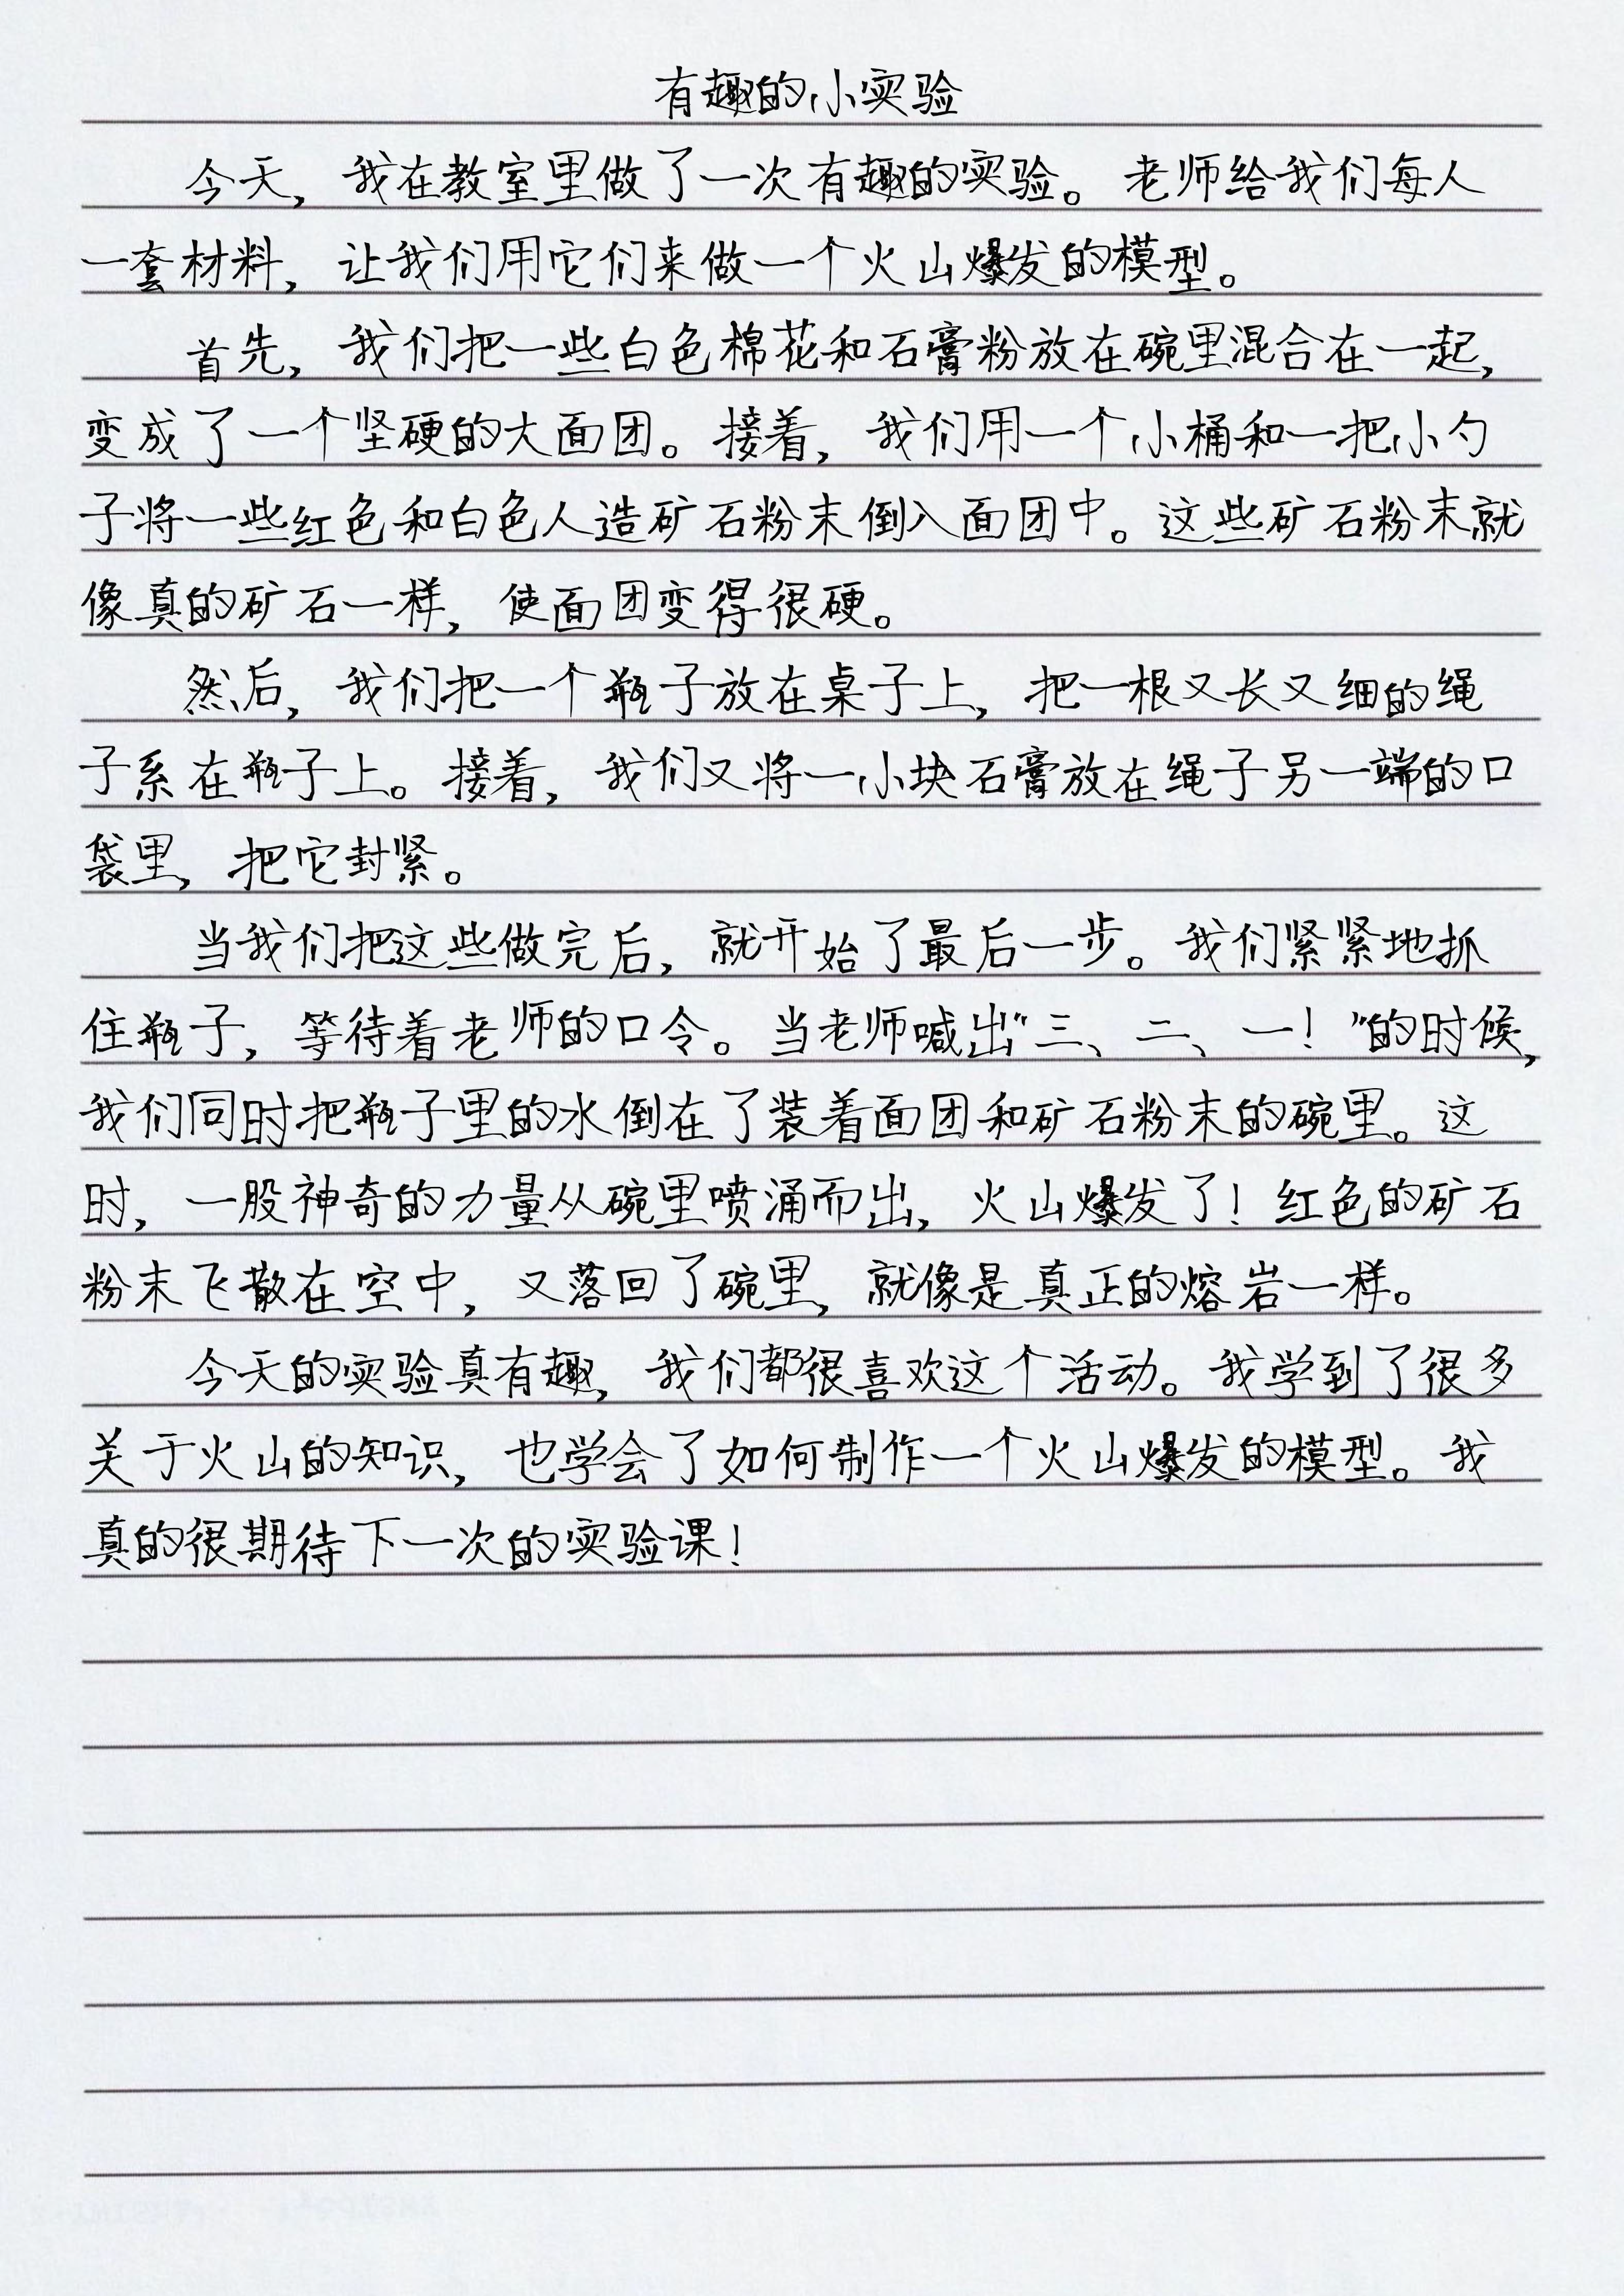 有趣的小实验
今天，我在教室里做了一次有趣的实验。老师给我们每人
一套材料，让我们用它们来做一个火山爆发的模型。
首先，我们把一些白色棉花和石膏粉放在碗里混合在一起，
变成了一个坚硬的大面团。接着，我们用一个小桶和一把小勺
子将一些红色和白色人造矿石粉末倒入面团中。这些矿石粉末就
像真的矿石一样，使面团变得很硬。
然后，我们把一个瓶子放在桌子上，把一根又长又细的绳
子系在瓶子上。接着，我们又将一小块石膏放在绳子另一端的口
袋里，把它封紧。
当我们把这些做完后，就开始了最后一步。我们紧紧地抓
住瓶子，等待着老师的口令。当老师喊出“三、二、一！”的时候，
我们同时把瓶子里的水倒在了装着面团和矿石粉末的碗里。这
时，一股神奇的力量从碗里喷涌而出，火山爆发了！红色的矿石
粉末飞散在空中，又落回了碗里，就像是真正的熔岩一样。
今天的实验真有趣，我们都很喜欢这个活动。我学到了很多
关于火山的知识，也学会了如何制作一个火山爆发的模型。我
真的很期待下一次的实验课！